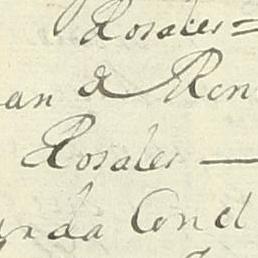 Rosales =
an de Ren
Rosales —
nda Con el